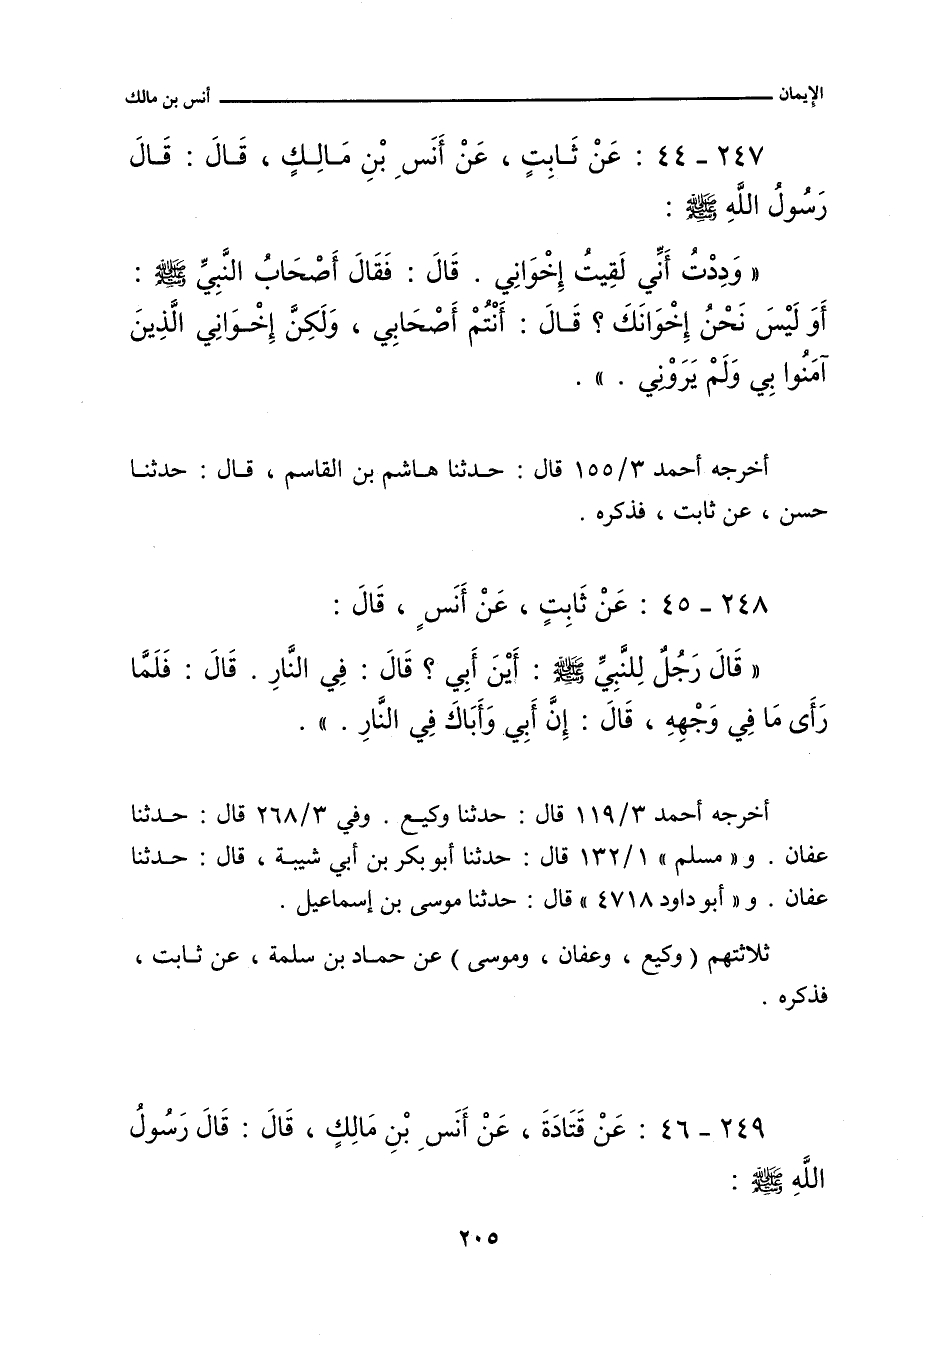 الإيمان ــــــ أنس بن مالك
٢٤٧ ـ ٤٤ : عَنْ ثَـابِتٍ ، عَنْ أَنَسِ بْنِ مَـالِـكٍ ، قَـالَ : قَـالَ
رَسُولُ اللَّهِ ﷺ :
« وَدِدْتُ أَنِّي لَقِيتُ إِخْوَانِي . قَالَ : فَقَالَ أَصْحَابُ النَّبِيِّ ﷺ :
أَوَ لَيْسَ نَحْنُ إِخْوَانَكَ ؟ قَـالَ : أَنْتُمْ أَصْحَابِي ، وَلَكِنَّ إِخْـوَانِي الَّذِينَ
آمَنُوا بِي وَلَمْ يَرَوْنِي . » .
أخرجه أحمد ٣/١٥٥ قال : حـدثنا هـاشم بن القاسم ، قـال : حدثنـا
حسن ، عن ثابت ، فذكره .
٢٤٨ ـ ٤٥ : عَنْ ثَابِتٍ ، عَنْ أَنَسٍ ، قَالَ :
« قَالَ رَجُلٌ لِلنَّبِيِّ ﷺ : أَيْنَ أَبِي ؟ قَالَ : فِي النَّارِ . قَالَ : فَلَمَّا
رَأَى مَا فِي وَجْهِهِ ، قَالَ : إِنَّ أَبِي وَأَبَاكَ فِي النَّارِ . » .
أخرجه أحمد ٣/١١٩ قال : حدثنا وكيـع . وفي ٣/٢٦٨ قال : حـدثنا
عفان . و « مسلم » ١/١٣٢ قال : حدثنا أبو بكر بن أبي شيبـة ، قال : حـدثنا
عفان . و « أبو داود ٤٧١٨ » قال : حدثنا موسى بن إسماعيل .
ثلاثتهم ( وكيع ، وعفان ، وموسى ) عن حمـاد بن سلمة ، عن ثـابت ،
فذكره .
٢٤٩ ـ ٤٦ : عَنْ قَتَادَةَ ، عَنْ أَنَسِ بْنِ مَالِكٍ ، قَالَ : قَالَ رَسُولُ
اللَّهِ ﷺ :
٢٠٥